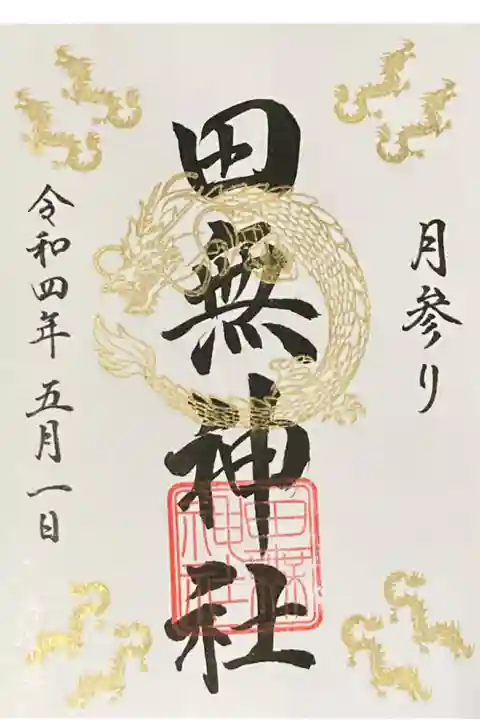 月参り
田無神社
令和四年 五月一日
田無
神社